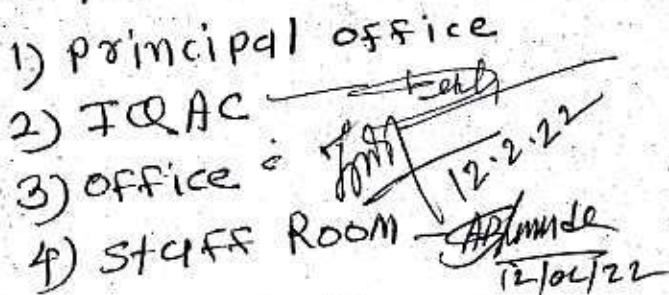 1) Principal office
2) IQAC
3) office : 12.2.22
4) Staff Room -
12/02/22